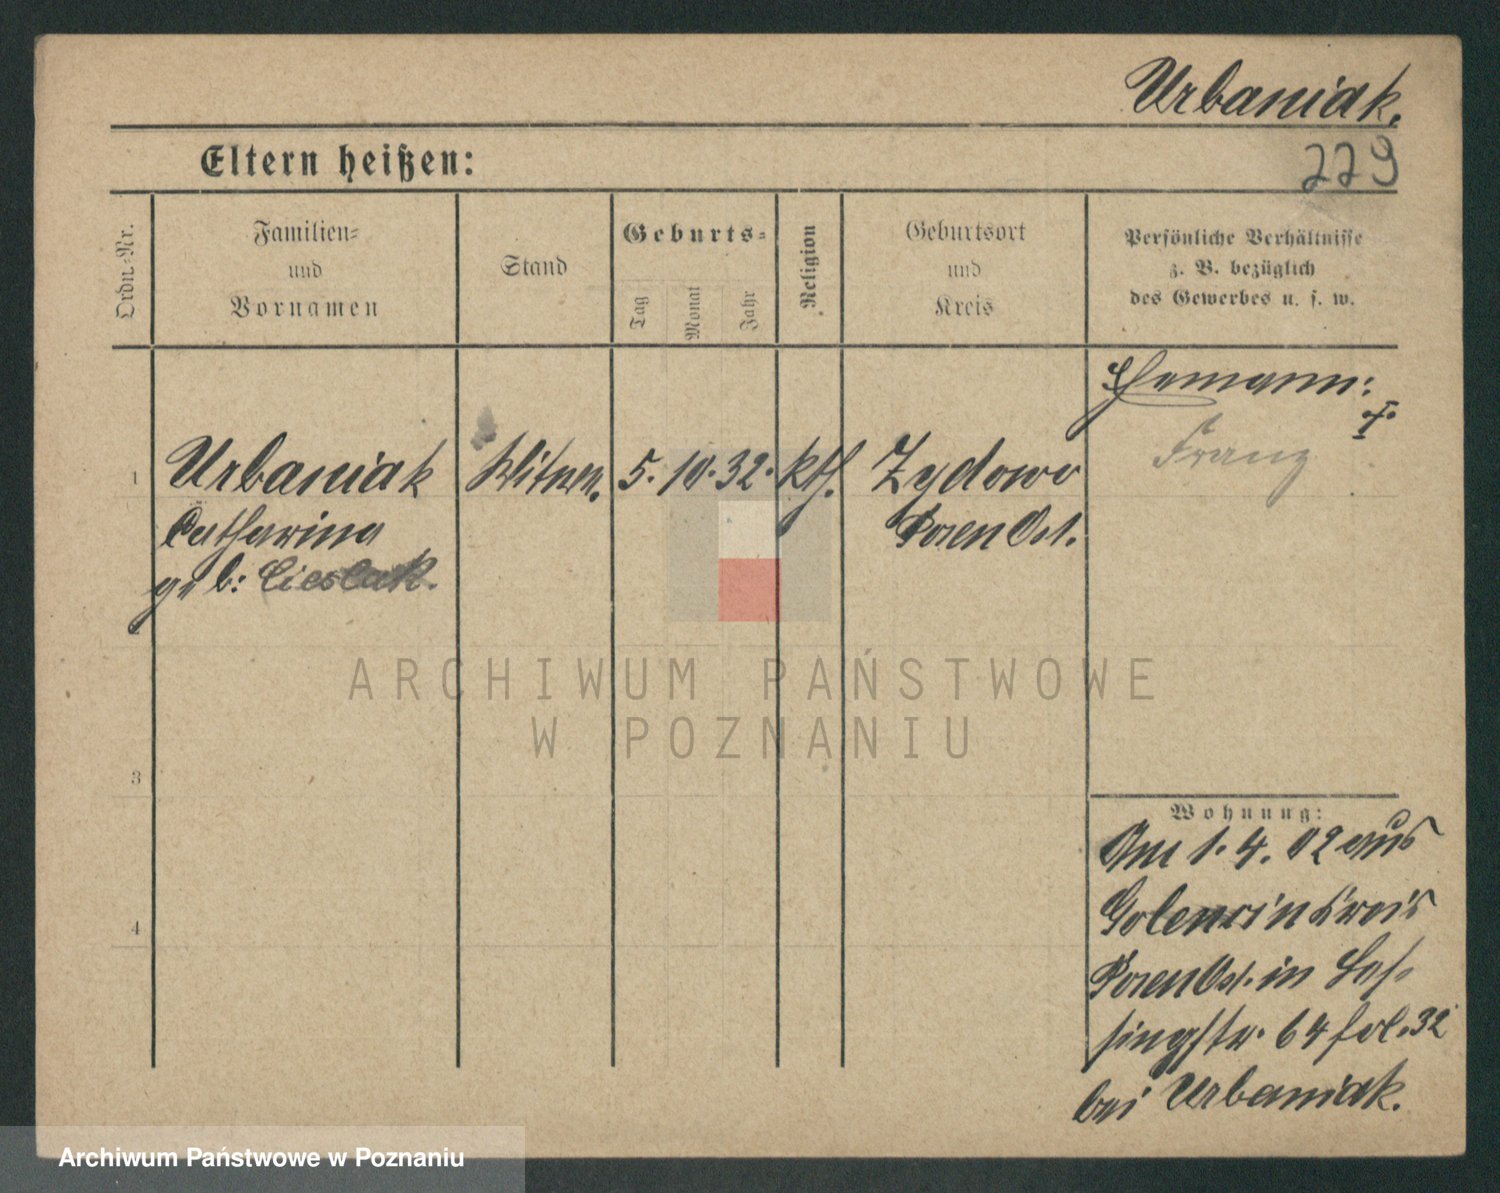 Urbaniak.
Eltern heißen:
229
Ordn.-Nr.
Familien-
und
Vornamen
Stand
Geburts-
Tag
Monat
Jahr
Religion
Geburtsort
und
Kreis
Persönliche Verhältnisse
z. B. bezüglich
des Gewerbes u. s. w.
Ehemann:
Franz
1
Urbaniak
Witwe.
5. 10. 32.
kth.
Zydowo
Catharina
Posen Ost.
geb: Cieslak.
2
3
4
Wohnung:
Am 1. 4. 02 aus
Golencin Kreis
Posen Ost. in Les-
singstr. 64 fol. 32
bei Urbaniak.
ARCHIWUM PAŃSTWOWE
W POZNANIU
Archiwum Państwowe w Poznaniu